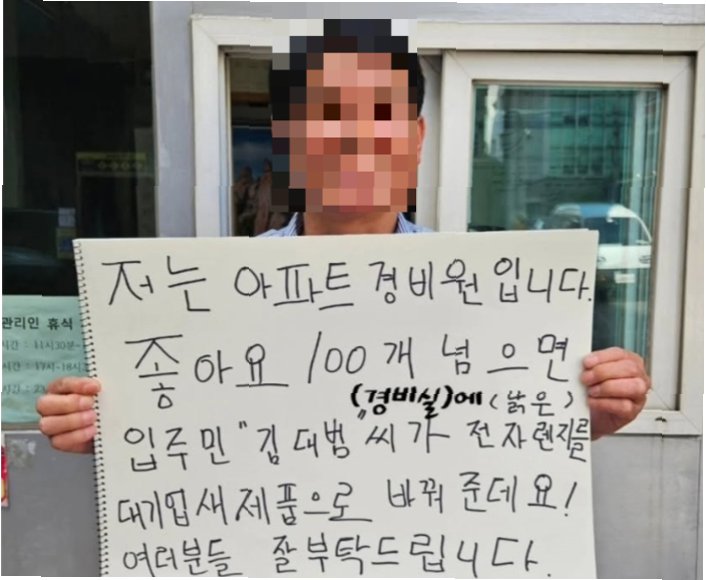 저는 아파트 경비원입니다.
좋아요 100개 넘으면
(경비실)에 (낡은)
입주민 "김대범"씨가 전자렌지를
대기업새제품으로 바꿔준데요!
여러분들 잘부탁드립니다.
관리인 휴식
시간 : 11시30분~
시간 : 17시~18시